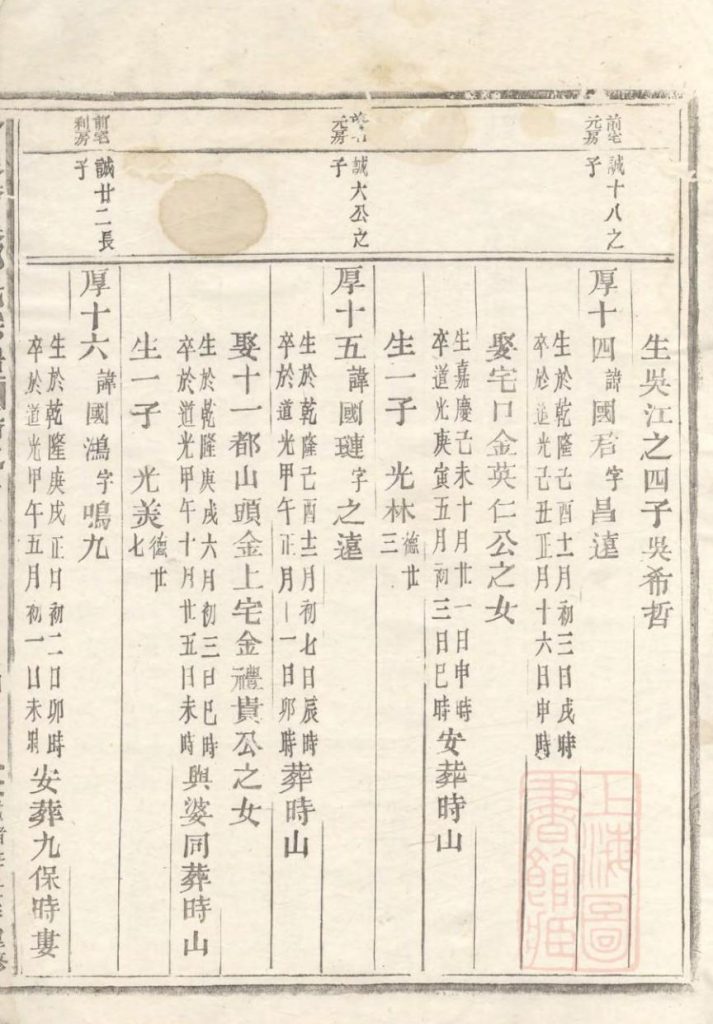 生吳江之四子吳希哲
前宅元房
誠十八之子
厚十四諱國君字昌遠
生於乾隆己酉十二月初三日戌時
卒於道光己丑正月十六日申時
娶宅口金英仁公之女
生嘉慶己未十月廿一日申時
卒道光庚寅五月初三日巳時安葬時山
生一子 光林德廿三
元房
誠六公之子
厚十五諱國璉字之遠
生於乾隆己酉十二月初七日辰時
卒於道光甲午正月十一日卯時葬時山
娶十一都山頭金上宅金禮貴公之女
生於乾隆庚戌六月初三日巳時
卒於道光甲午十月廿五日未時與婆同葬時山
生一子 光美德廿七
前宅利房
誠廿二長子
厚十六諱國鴻字鳴九
生於乾隆庚戌正月初二日卯時
卒於道光甲午五月初一日未時安葬九保時婁
上海圖書館藏